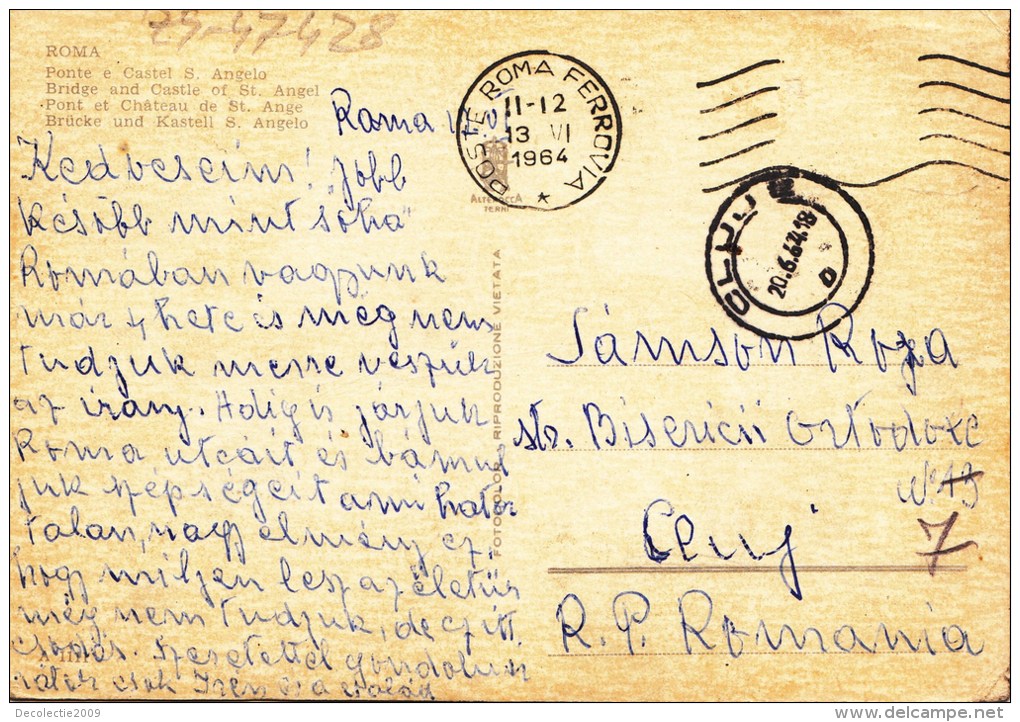 29-47428
ROMA
Ponte e Castel S. Angelo
Bridge and Castle of St. Angel
Pont et Château de St. Ange
Brücke und Kastell S. Angelo
Roma
POSTE ROMA FERROVIA
11-12
13 VI
1964
ALTEROCCA
TERNI
Kedveseim! "jobb
később mint soha"
Romában vagyunk
már 4 hete és még nem
tudjuk merre veszük
az irány. Addig is járjuk
Roma utcáit és bámul
juk szépségeit ami hatá
talan, nagy élmény ez,
hogy miljen lesz az életünk
még nem tudjuk, de itt
csodás. Szeretettel gondolunk
rátok csok Iren és a család
FOTOCOLOR - RIPRODUZIONE VIETATA
CLUJ
20.6.64.18
Sámson Roza
str. Bisericii Ortodoxe
No 19
7
Cluj
R. P. Romania
Decolectie2009
www.delcampe.net